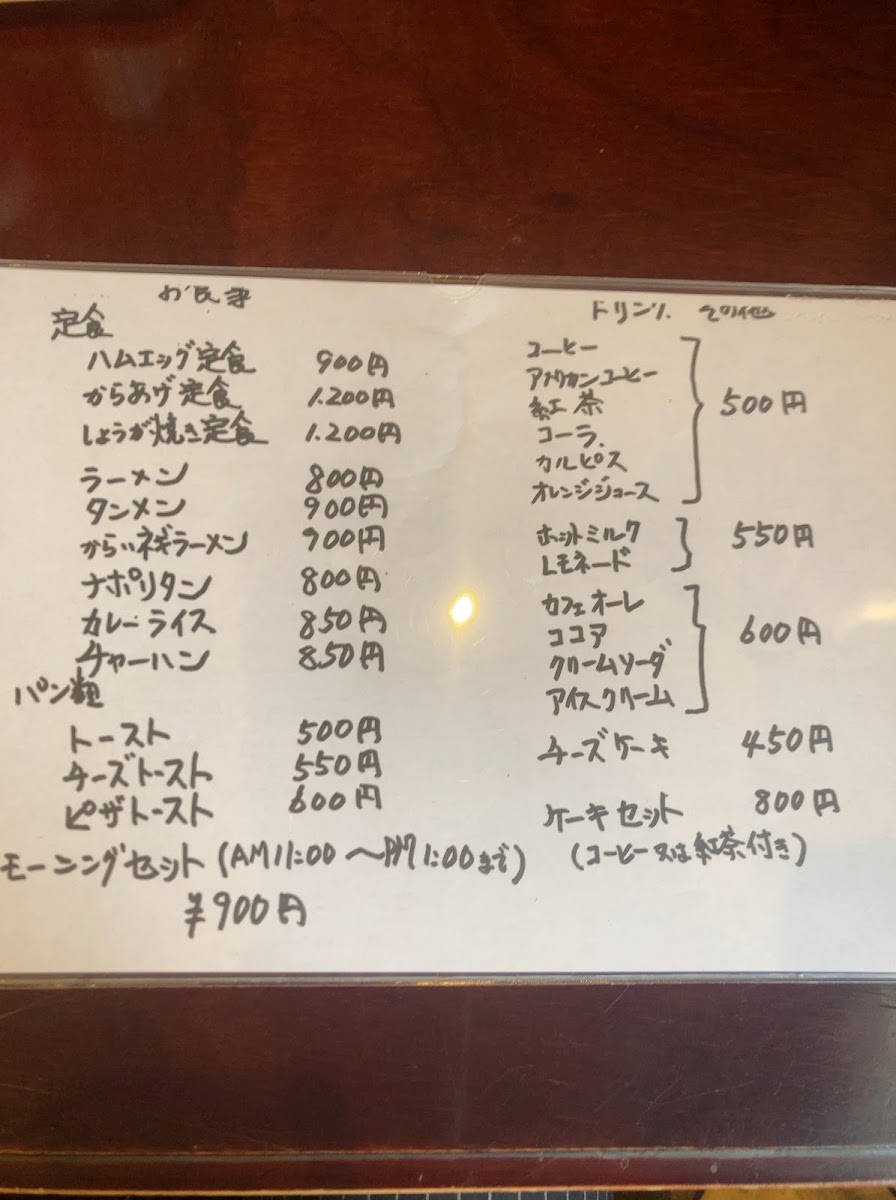 お食事
定食
ハムエッグ定食 900円
からあげ定食 1.200円
しょうが焼き定食 1.200円
ラーメン 800円
タンメン 900円
からいネギラーメン 900円
ナポリタン 800円
カレーライス 850円
チャーハン 850円
パン類
トースト 500円
チーズトースト 550円
ピザトースト 600円
モーニングセット(AM11:00〜PM1:00まで)
¥900円
ドリンク その他
コーヒー
アメリカンコーヒー
紅茶
コーラ
カルピス
オレンジジュース
500円
ホットミルク
Lモネード
550円
カフェオーレ
ココア
クリームソーダ
アイスクリーム
600円
チーズケーキ 450円
ケーキセット 800円
(コーヒー又は紅茶付き)